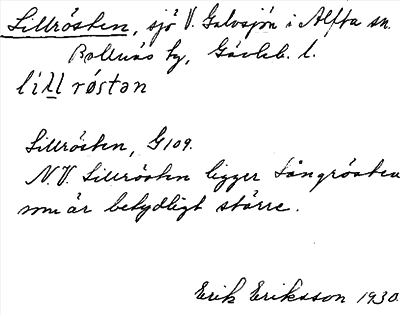 Lillrösten, sjö V. Galvsjön i Alfta sn.
Bollnäs tg, Gävleb. l.
líll røstən
Lillrösten, G109.
N.V. Lillrösten ligger Långrösten
som är betydligt större.
Erik Eriksson 1930